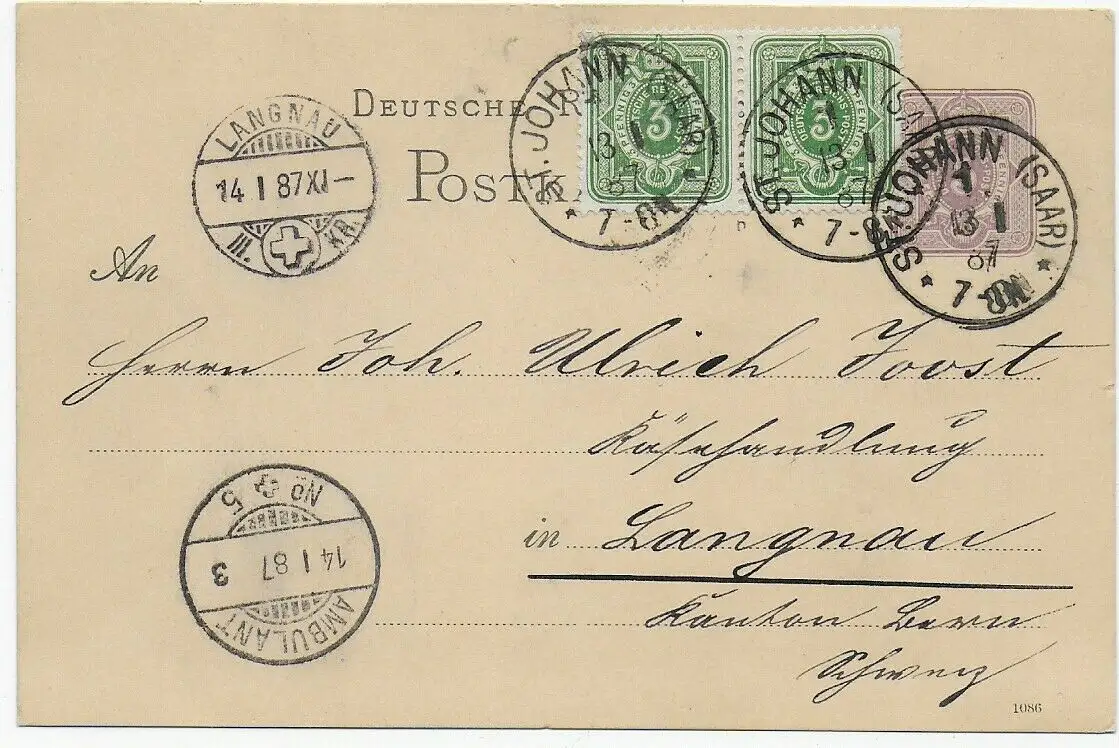 DEUTSCHE R
POSTKA
PFENNIG 3 PFENNIG
DEUTSCHE REICHS-POST
PFENNIG 3 PFENNIG
DEUTSCHE REICHS-POST
ST. JOHANN (SAAR)
13 1
87
* 7-8N *
ST. JOHANN (SAAR)
13 1
87
* 7-8N
ST. JOHANN (SAAR)
13 1
87
* 7-8N *
LANGNAU
14 I 87 XI –
III. KR.
An
Herrn Joh. Ulrich Joost
Käsehandlung
in Langnau
Kanton Bern
Schweiz
No 5
14 I 87 3
AMBULANT
1086